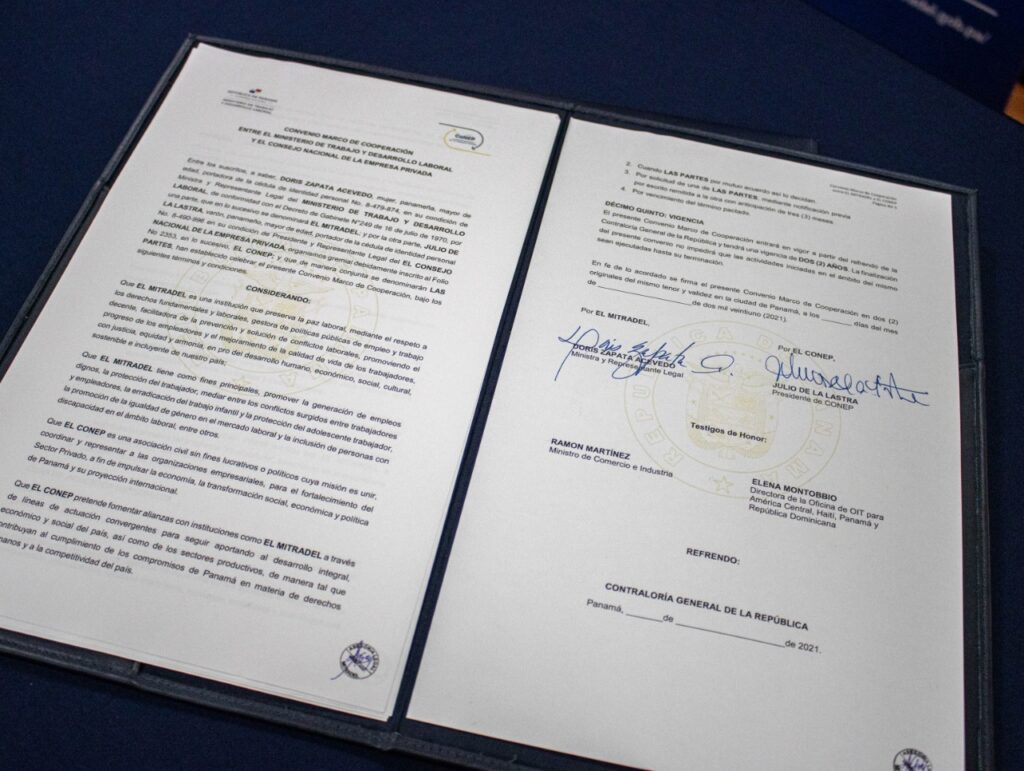 REPÚBLICA DE PANAMÁ
MINISTERIO DE TRABAJO
Y DESARROLLO LABORAL
CoNEP
CONVENIO MARCO DE COOPERACIÓN
ENTRE EL MINISTERIO DE TRABAJO Y DESARROLLO LABORAL
Y EL CONSEJO NACIONAL DE LA EMPRESA PRIVADA
Entre los suscritos, a saber, DORIS ZAPATA ACEVEDO, mujer, panameña, mayor de
edad, portadora de la cédula de identidad personal No. 8-479-874, en su condición de
Ministra y Representante Legal del MINISTERIO DE TRABAJO Y DESARROLLO
LABORAL, de conformidad con el Decreto de Gabinete N°249 de 16 de julio de 1970, por
una parte, que en lo sucesivo se denominará EL MITRADEL, y por la otra parte, JULIO DE
LA LASTRA, varón, panameño, mayor de edad, portador de la cédula de identidad personal
No. en su condición de Presidente y Representante Legal del EL CONSEJO
NACIONAL DE LA EMPRESA PRIVADA, organismos gremial debidamente inscrito al Folio
No 2353, en lo sucesivo, EL CONEP; y que de manera conjunta se denominarán LAS
PARTES, han establecido celebrar el presente Convenio Marco de Cooperación, bajo los
siguientes términos y condiciones.
CONSIDERANDO:
Que EL MITRADEL es una institución que preserva la paz laboral, mediante el respeto a
los derechos fundamentales y laborales, gestora de políticas públicas de empleo y trabajo
decente, facilitadora de la prevención y solución de conflictos laborales, promoviendo el
progreso de los empleadores y el mejoramiento de la calidad de vida de los trabajadores,
con justicia, equidad y armonía, en pro del desarrollo humano, económico, social, cultural,
sostenible e incluyente de nuestro país.
Que EL MITRADEL tiene como fines principales, promover la generación de empleos
dignos, la protección del trabajador, mediar entre los conflictos surgidos entre trabajadores
y empleadores, la erradicación del trabajo infantil y la protección del adolescente trabajador,
la promoción de la igualdad de género en el mercado laboral y la inclusión de personas con
discapacidad en el ámbito laboral, entre otros.
Que EL CONEP es una asociación civil sin fines lucrativos o políticos cuya misión es unir,
coordinar y representar a las organizaciones empresariales, para el fortalecimiento del
Sector Privado, a fin de impulsar la economía, la transformación social, económica y política
de Panamá y su proyección internacional.
Que EL CONEP pretende fomentar alianzas con instituciones como EL MITRADEL a través
de líneas de actuación convergentes para seguir aportando al desarrollo integral,
económico y social del país, así como de los sectores productivos, de manera tal que
contribuyan al cumplimiento de los compromisos de Panamá en materia de derechos
humanos y a la competitividad del país.
2. Cuando LAS PARTES por mutuo acuerdo así lo decidan.
3. Por solicitud de una de LAS PARTES, mediante notificación previa
por escrito remitida a la otra con anticipación de tres (3) meses
4. Por vencimiento del término pactado.
DÉCIMO QUINTO: VIGENCIA
El presente Convenio Marco de Cooperación entrará en vigor a partir del refrendo de la
Contraloría General de la República y tendrá una vigencia de DOS (2) AÑOS. La finalización
del presente convenio no impedirá que las actividades iniciadas en el ámbito del mismo
sean ejecutadas hasta su terminación.
En fe de lo acordado se firma el presente Convenio Marco de Cooperación en dos (2)
originales del mismo tenor y validez en la ciudad de Panamá, a los ______ días del mes
de ____________________de dos mil veintiuno (2021).
Por EL MITRADEL,
Por EL CONEP,
DORIS ZAPATA ACEVEDO
Ministra y Representante Legal
JULIO DE LA LASTRA
Presidente de CONEP
REPÚBLICA DE PANAMÁ
Testigos de Honor:
RAMON MARTÍNEZ
Ministro de Comercio e Industria
ELENA MONTOBBIO
Directora de la Oficina de OIT para
América Central, Haití, Panamá y
República Dominicana
REFRENDO:
CONTRALORÍA GENERAL DE LA REPÚBLICA
Panamá, _______de ____________________de 2021.